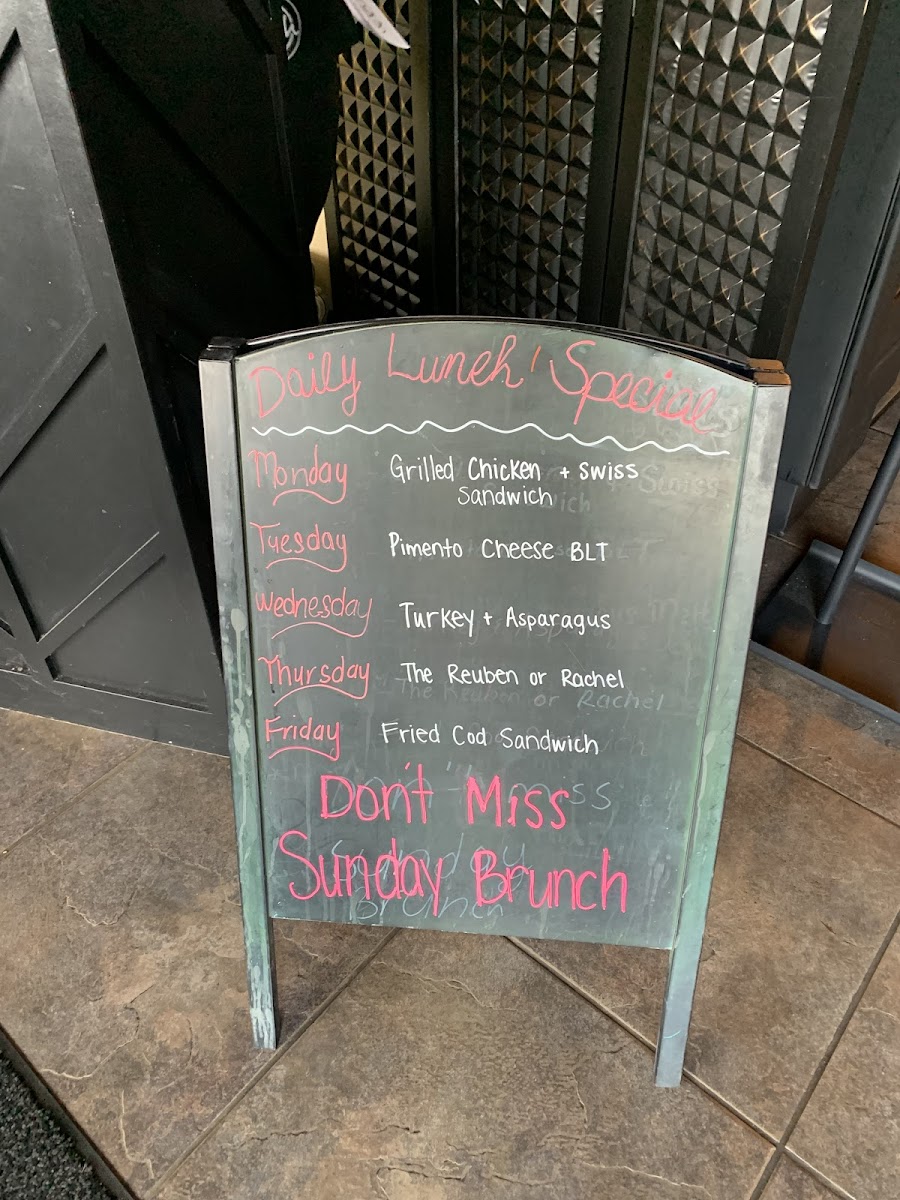 Daily Lunch Special
Monday Grilled Chicken + Swiss
Sandwich
Tuesday Pimento Cheese BLT
Wednesday Turkey + Asparagus
Thursday The Reuben or Rachel
Friday Fried Cod Sandwich
Don't Miss
Sunday Brunch